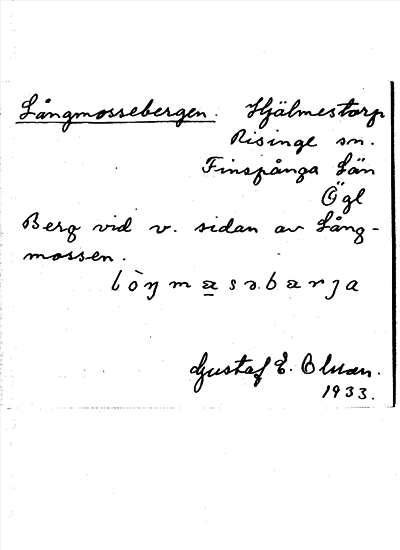 Långmossebergen. Hjälmestorp
Risinge sn.
Finspånga Län
Ögl
Berg vid v. sidan av Lång-
mossen.
lòŋmasəbarja
Gustaf E. Olsson.
1933.